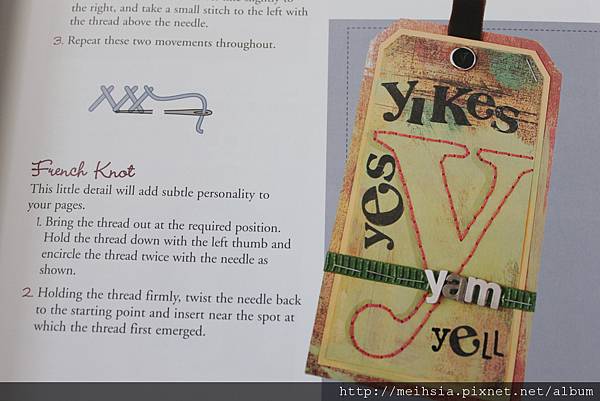 the right, and take a small stitch to the left with
the thread above the needle.
3. Repeat these two movements throughout.
French Knot
This little detail will add subtle personality to
your pages.
1. Bring the thread out at the required position.
Hold the thread down with the left thumb and
encircle the thread twice with the needle as
shown.
2. Holding the thread firmly, twist the needle back
to the starting point and insert near the spot at
which the thread first emerged.
yikes
yes
y
yam
yell
http://meihsia.pixnet.net/album